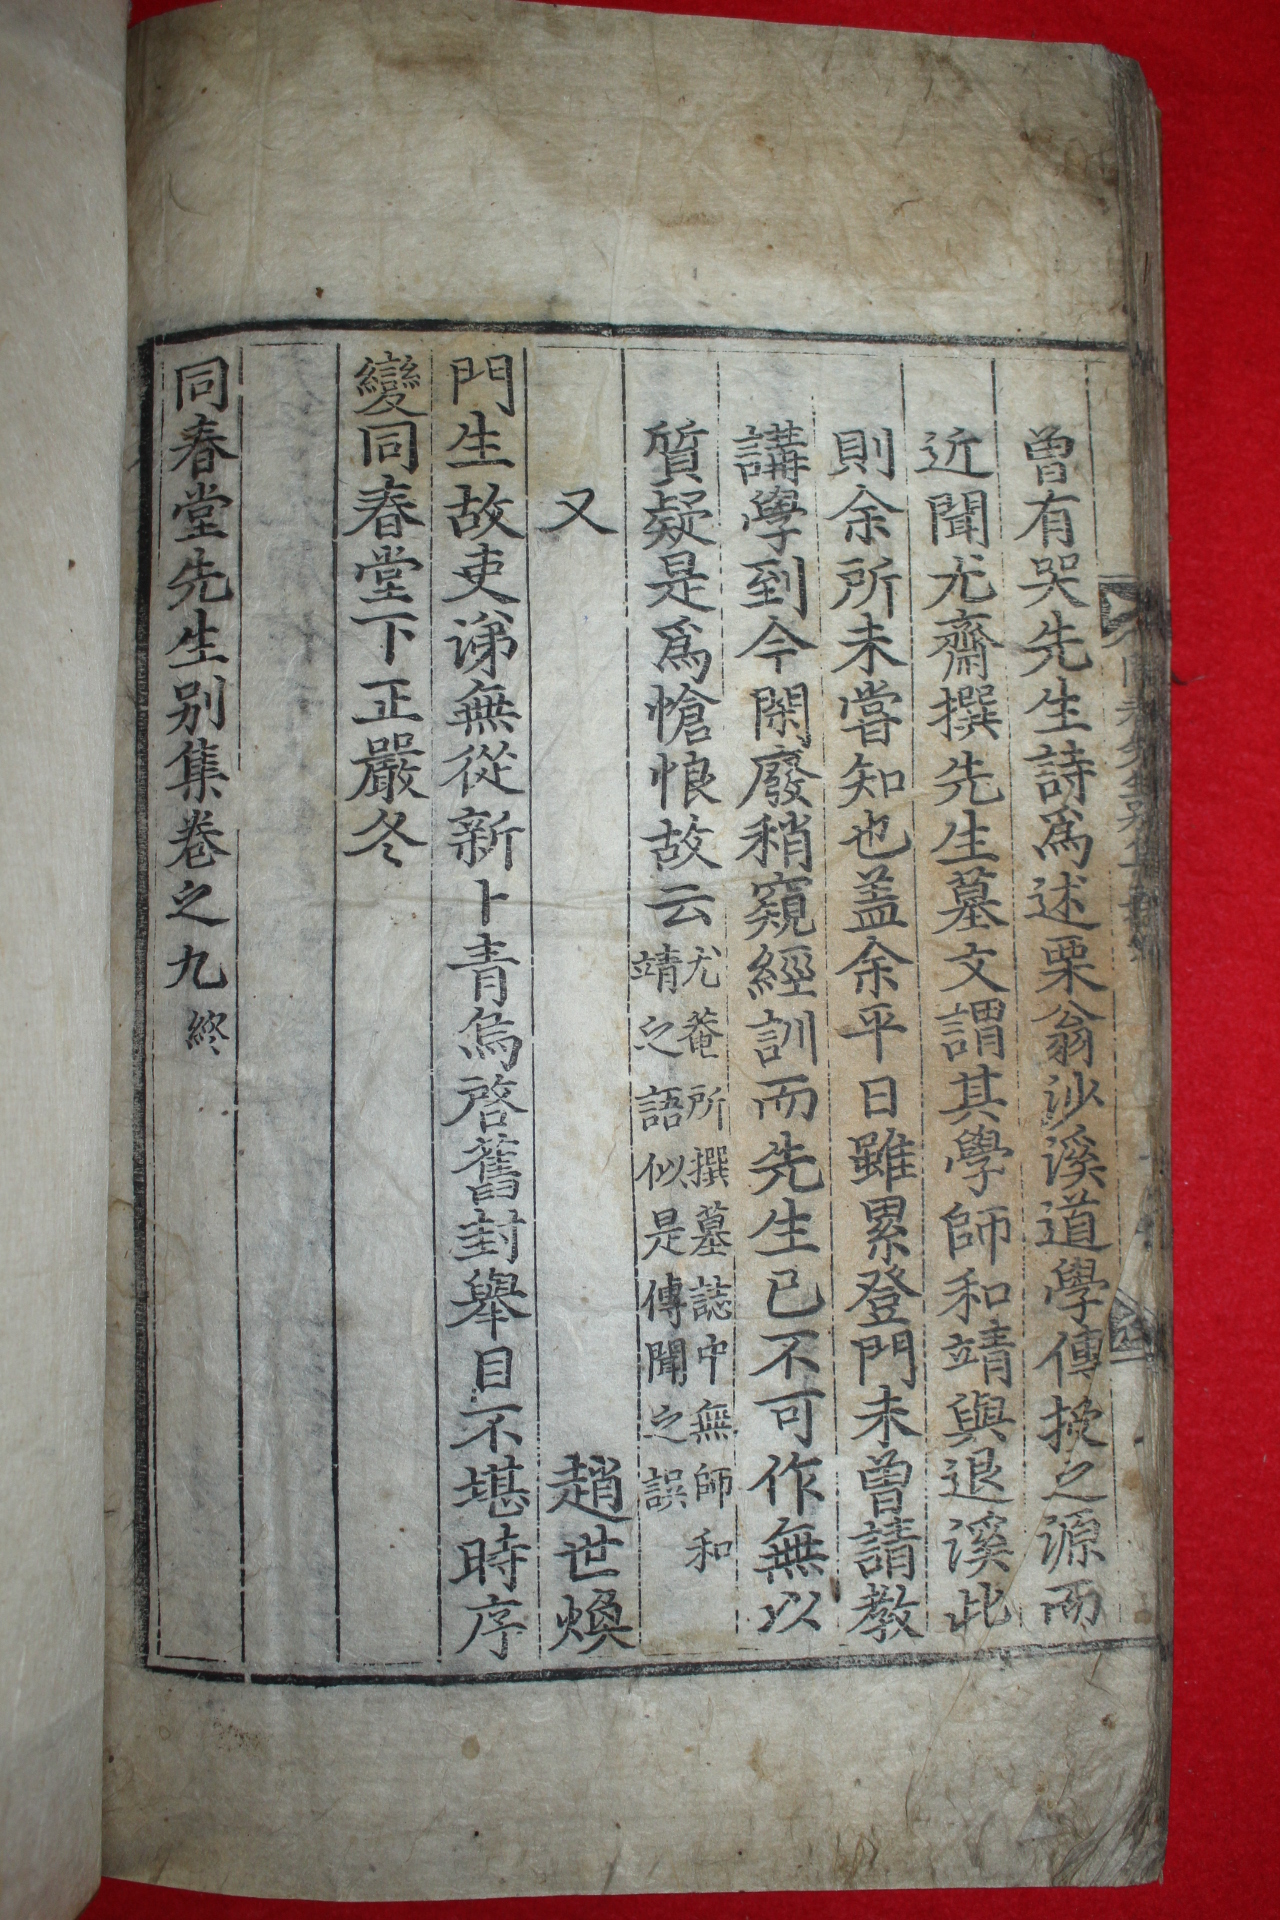 曾有哭先生詩爲述栗翁沙溪道學傳授之源而
近聞尤齋撰先生墓文謂其學師和靖與退溪此
則余所未嘗知也盖余平日雖累登門未曾請教
講學到今閑廢稍窺經訓而先生已不可作無以
質疑是爲愴悢故云
尤菴所撰墓誌中無師和
靖之語似是傳聞之誤
又 趙世煥
門生故吏涕無從新卜青烏啓舊封擧目不堪時序
變同春堂下正嚴冬
同春堂先生別集卷之九 終